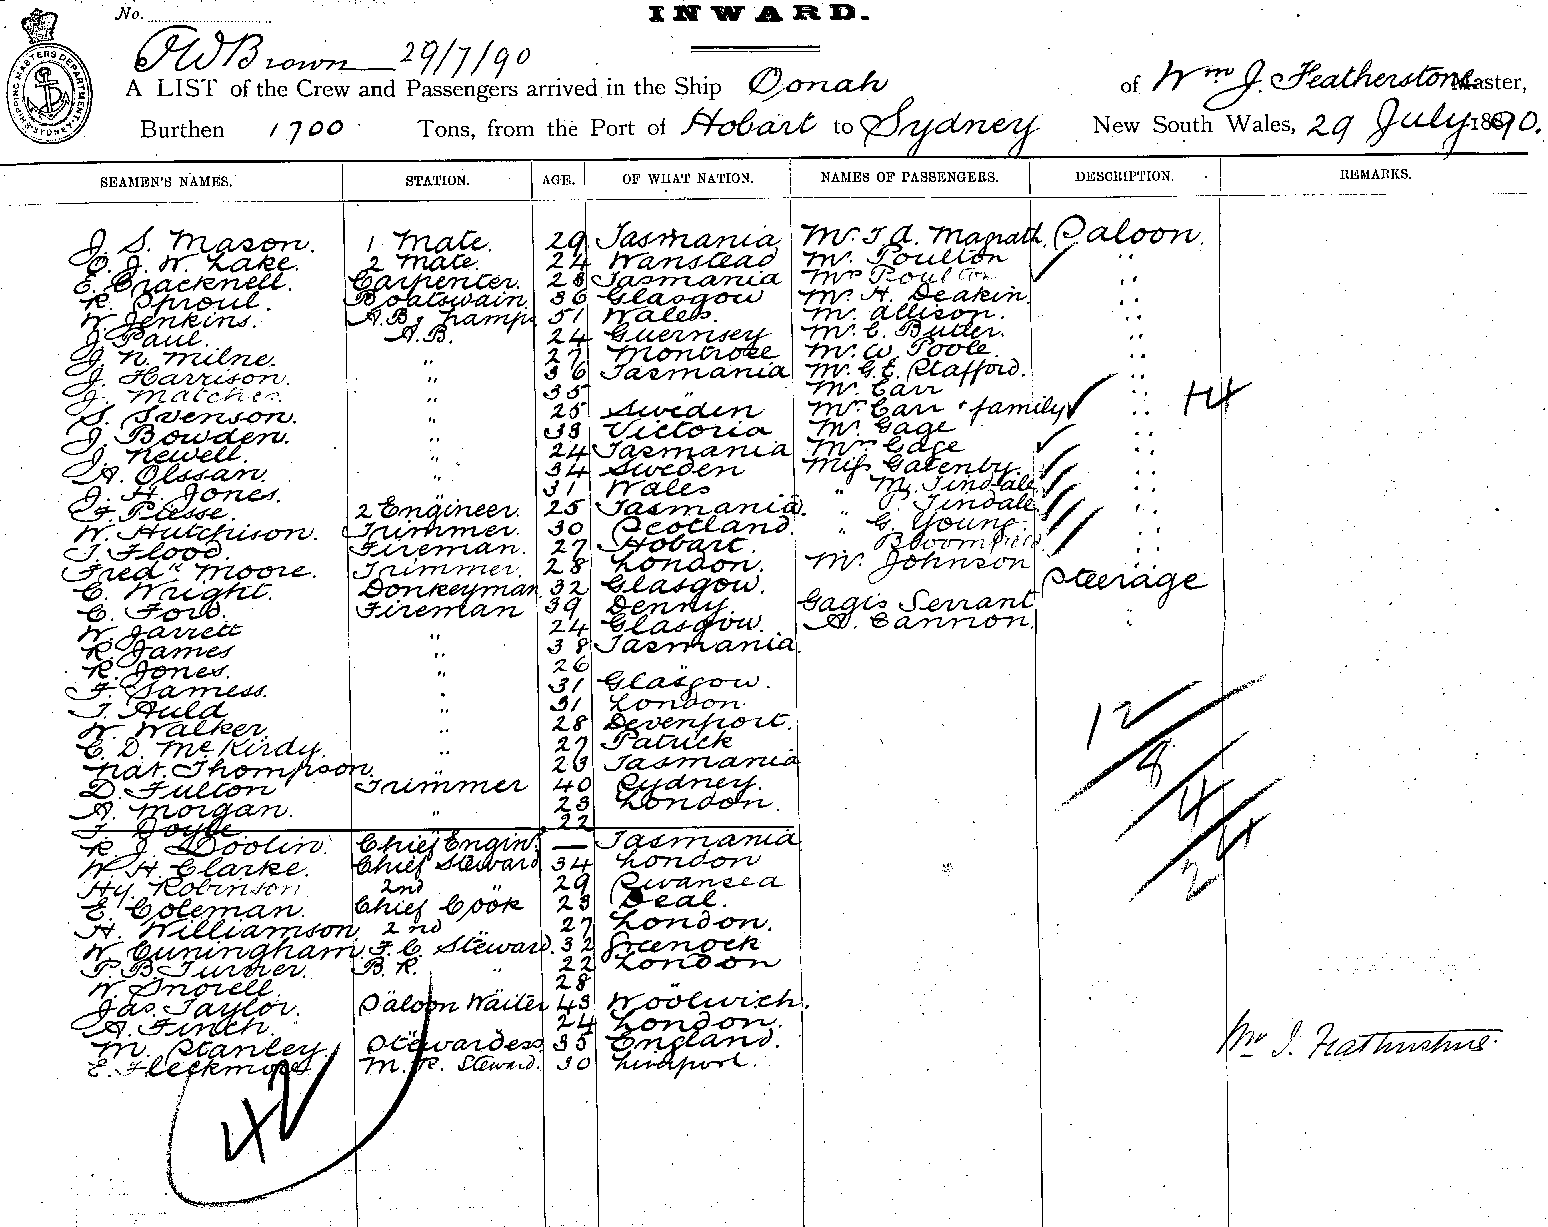 No.
INWARD.
F W Brown 29/7/90
SHIPPING MASTERS DEPARTMENT SYDNEY
A LIST of the Crew and Passengers arrived in the Ship Oonah of Wm J. Featherstone Master,
Burthen 1700 Tons, from the Port of Hobart to Sydney New South Wales, 29 July 1890.
SEAMEN'S NAMES. STATION. AGE. OF WHAT NATION. NAMES OF PASSENGERS. DESCRIPTION. REMARKS.
J. S. Mason. 1 Mate. 29 Tasmania Mr. T A. Magrath. Saloon.
C. J. W. Lake. 2 Mate. 24 Wanstead Mr. Poulton "
E. Cracknell. Carpenter. 28 Tasmania Mrs Poulton "
R. Sproul. Boatswain 36 Glasgow Mr. H. Deakin. "
W. Jenkins. A.B. & Lamps 51 Wales. Mr. Allison. "
J. Paul. A.B. 24 Guernsey Mr. C. Butler. "
J. N. Milne. " 27 Montrose Mr. W. Poole. "
J. Harrison. " 36 Tasmania Mr. G. E. Stafford. "
J. Matches. " 35 " Mr. Carr "
S. Svenson. " 25 Sweden Mrs Carr & family " 14
J. Bowden. " 33 Victoria Mr. Gage "
J. Newell. " 24 Tasmania Mrs Gage "
A. Olssan. " 34 Sweden Miss Gatenby "
J. H. Jones. " 31 Wales " M. Tindale "
F. Piesse. 2 Engineer. 25 Tasmania. " Tindale "
W. Hutchison. Trimmer 30 Scotland. " G. Young. "
T. Flood. Fireman. 27 Hobart. " Bloomfield "
Fredk Moore. Trimmer. 28 London. Mr. Johnson "
C. Wright. Donkeyman 32 Glasgow. Steerage
C. Ford. Fireman 39 Denny. Gages Servant
W. Jarrett " 24 Glasgow. A. Cannon. "
R. James " 38 Tasmania.
R. Jones. " 26 "
F. Samess. " 31 Glasgow.
T. Auld " 31 London
W. Walker " 28 Devenport.
C. D. McKirdy. " 27 Patrick
Nat. Thompson " 23 Tasmania
D. Fulton Trimmer 40 Sydney.
A. Morgan. " 23 London.
T. Doyle. 22
R. J. Doolin. Chief Engin. — Tasmania
W. H. Clarke. Chief Steward 34 London
Hy. Robinson 2nd " 29 Swansea
E. Coleman. Chief Cook 23 Deal.
H. Williamson 2nd " 27 London.
W. Cuningham F. C. Steward. 32 Greenock
P. B Turner. B. R. " 22 London
W. Snorell. 28 "
Jas. Taylor. Saloon Waiter 43 Woolwich.
A. Finch. " 24 London.
M. Stanley Stewardess 35 England.
E. Fleckmore M. R. Steward. 30 Liverpool.
12
8
4
24
42
Wm J. Featherstone.